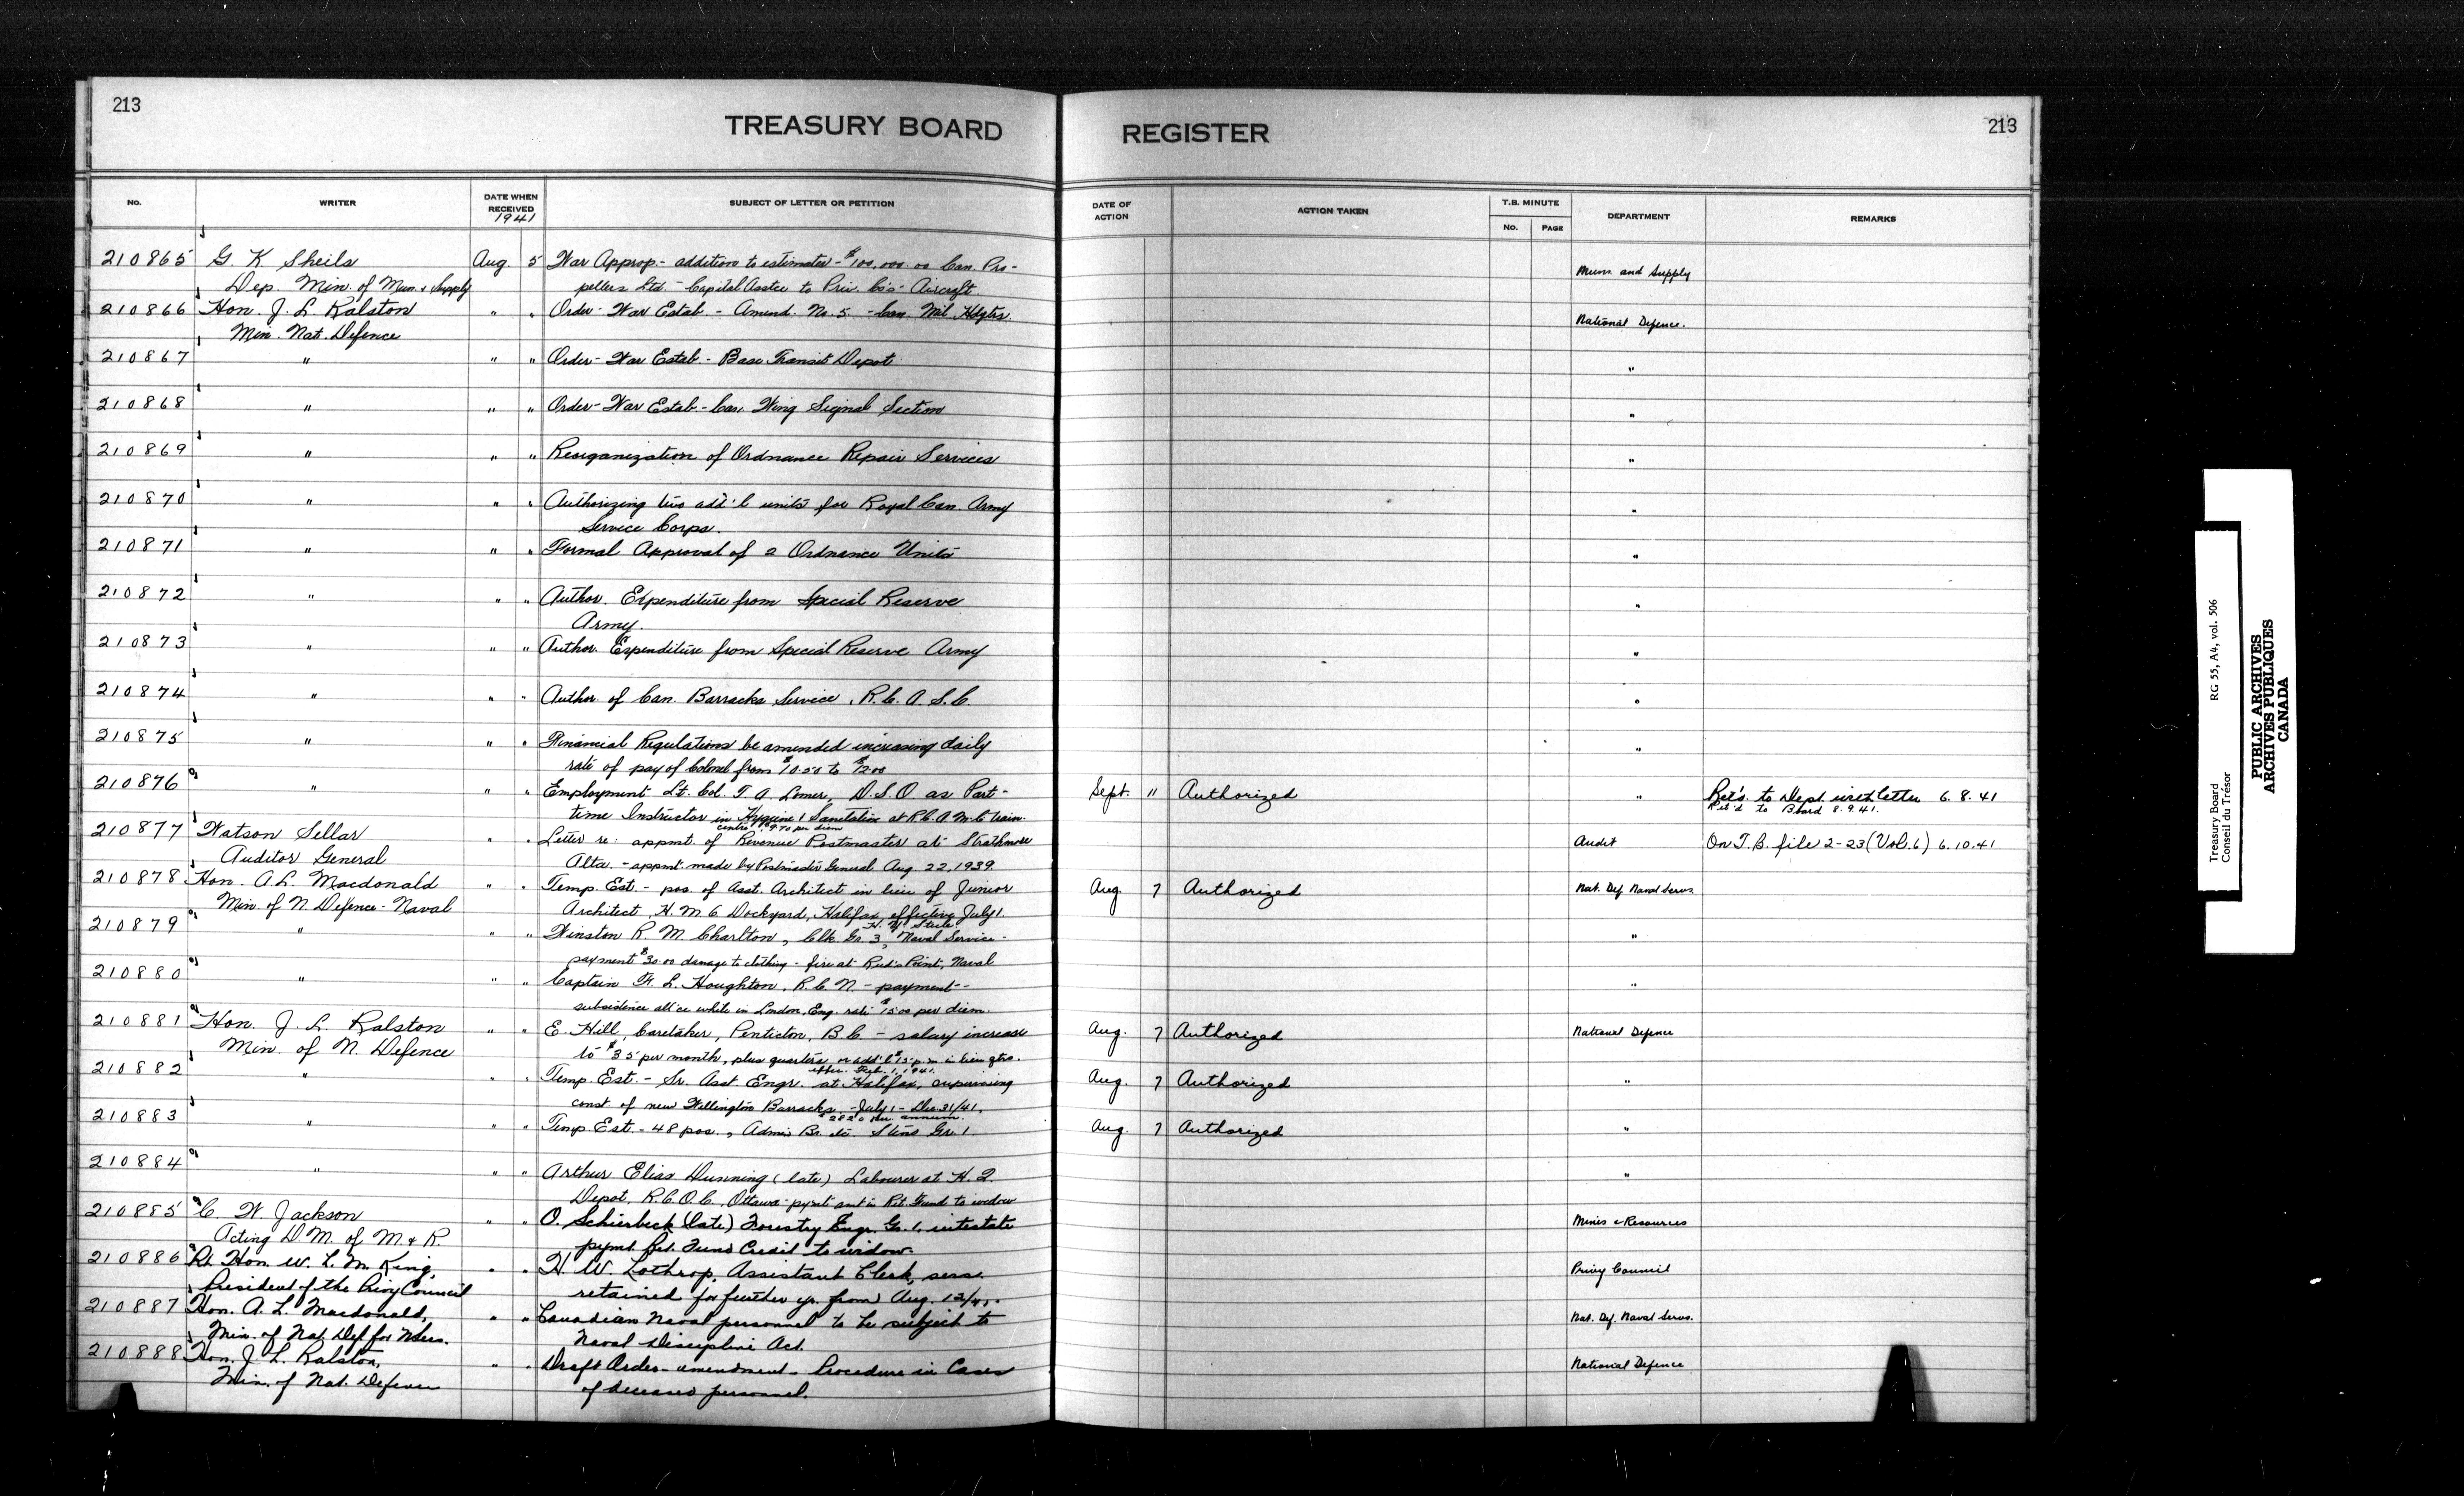 213
TREASURY BOARD
REGISTER
213
No.
WRITER
DATE WHEN RECEIVED
1941
SUBJECT OF LETTER OR PETITION
DATE OF ACTION
ACTION TAKEN
T.B. MINUTE
No.
PAGE
DEPARTMENT
REMARKS
210865 G. K Sheils Aug. 5 War Approp. - addition to estimates - $100,000.00 Can. Pro- Muns. and Supply
Dep. Min. of Mun. & Supply pellers Ltd. - Capital Asstce to Priv. Co's - Aircraft.
210866 Hon. J. L. Ralston " " Order - War Estab. - Amend. No. 5. - Can. Mil. Hdqtrs. National Defence.
Min. Nat. Defence
210867 " " " Order - War Estab. - Base Transit Depot "
210868 " " " Order - War Estab. - Can. Wing Signal Section "
210869 " " " Reorganization of Ordnance Repair Services "
210870 " " " Authorizing two add'l units for Royal Can. Army "
Service Corps.
210871 " " " Formal Approval of 2 Ordnance Units "
210872 " " " Author. Expenditure from Special Reserve "
Army.
210873 " " " Author. Expenditure from Special Reserve Army "
210874 " " " Author. of Can. Barracks Service, R.C.A.S.C. "
210875 " " " Financial Regulations be amended increasing daily "
rate of pay of Colonel from $10.50 to $12.00
210876 " " " Employment Lt. Col. T. A. Lomer, D.S.O. as Part- Sept. 11 Authorized " Ret'd. to Dept with letter 6.8.41
time Instructor in Hygiene & Sanitation at R.C.A.M.C train. Ret'd to Board 8.9.41.
centre, $9.70 per diem
210877 Watson Sellar " " Letter re: appmt. of Revenue Postmaster at Strathmore Audit On T.B. file 2-23 (Vol. 6) 6.10.41
Auditor General Alta. - appmt. made by Postmaster General Aug 22, 1939.
210878 Hon. A. L. Macdonald " " Temp. Est. - pos. of Asst. Architect in lieu of Junior Aug. 7 Authorized Nat. Def. Naval Servs.
Min. of N. Defence - Naval Architect, H.M.C Dockyard, Halifax, effective July 1.
210879 " " " Winston R. M. Charlton, Clk. Gr. 3, Naval Service - "
payment $30.00 damage to clothing - fire at Reed's Point, Naval
210880 " " " Captain F. L. Houghton, R.C.N. - payment - "
subsistence all'ce while in London, Eng. rate $15.00 per diem.
210881 Hon. J. L. Ralston " " E. Hill, Caretaker, Penticton, B.C. - salary increase Aug. 7 Authorized National Defence
Min. of N. Defence to $35 per month, plus quarters, or add'l $15 p.m. in lieu qtrs.
effec. Feb. 1, 1941.
210882 " " " Temp. Est. - Sr. Asst. Engr. at Halifax, supervising Aug. 7 Authorized "
const. of new Wellington Barracks - July 1 - Dec. 31/41.
$2820 per annum.
210883 " " " Temp. Est. - 48 pos., Admin Br. Steno Gr. 1. Aug. 7 Authorized "
210884 " " " Arthur Elias Dunning (late) Labourer at H.Q. "
Depot, R.C.O.C., Ottawa - pymt amt in Ret. Fund to widow
210885 C. W. Jackson " " O. Schierbeck (late) Forestry Engr. Gr. 1, intestate Mines & Resources
Acting D.M. of M. & R. pymt. Ret. Fund Credit to widow.
210886 Rt. Hon. W. L. M. King, " " H. W. Lothrop, Assistant Clerk, servs. Privy Council
President of the Privy Council retained for further yr. from Aug. 12/41.
210887 Hon. A. L. Macdonald, " " Canadian Naval personnel to be subject to Nat. Def. Naval Servs.
Min. of Nat. Def. for N. Servs. Naval Discipline Act.
210888 Hon. J. L. Ralston, " " Draft Order - amendment - Procedure in Cases National Defence
Min. of Nat. Defence of deceased personnel.
Treasury Board RG 55, A4, vol. 506
Conseil du Trésor
PUBLIC ARCHIVES
ARCHIVES PUBLIQUES
CANADA